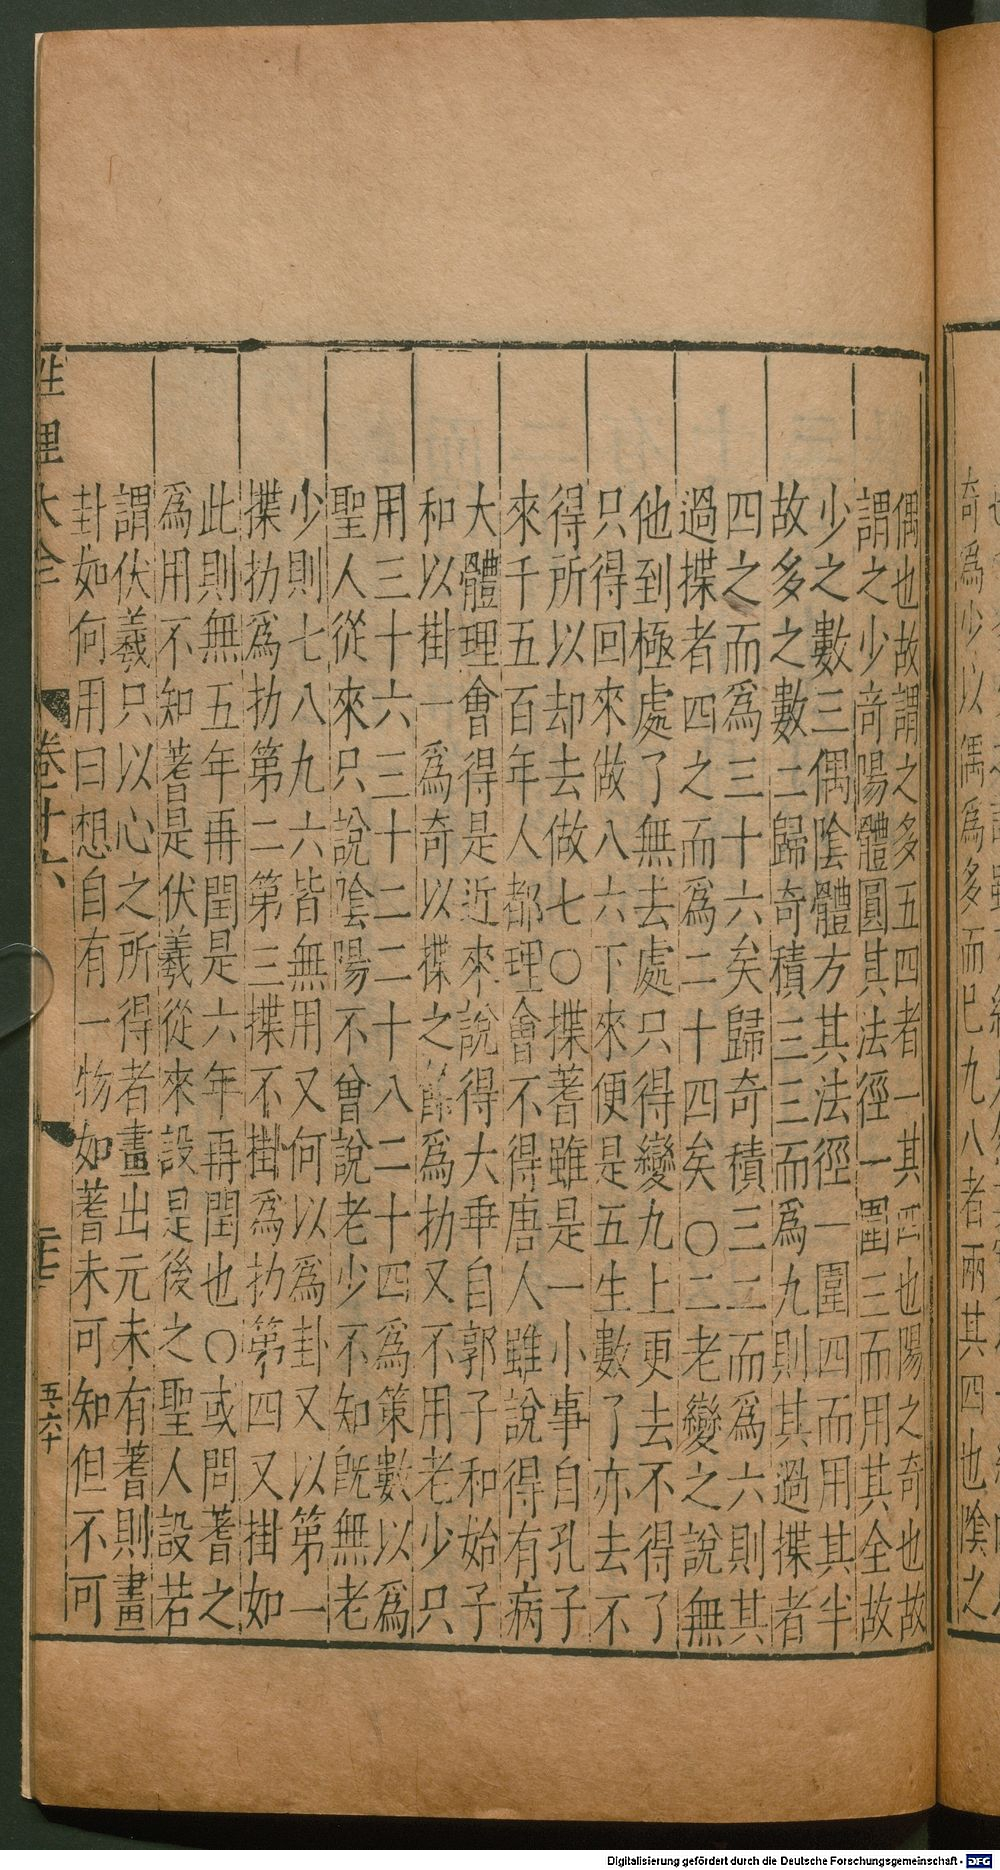 偶也故謂之多五四者一其四也陽之奇也故
謂之少竒陽體圓其法徑一圍三而用其全故
少之數三偶陰體方其法徑一圍四而用其半
故多之數二歸奇積三三而爲九則其過揲者
四之而爲三十六矣歸奇積三二而爲六則其
過揲者四之而爲二十四矣〇二老變之說無
他到極處了無去處只得變九上更去不得了
只得回來做八六下來便是五生數了亦去不
得所以却去做七〇揲蓍雖是一小事自孔子
來千五百年人都理會不得唐人雖說得有病
大體理會得是近來說得大乖自郭子和始子
和以掛一爲奇以揲之餘爲扐又不用老少只
用三十六三十二二十八二十四爲策數以爲
聖人從來只說陰陽不曾說老少不知旣無老
少則七八九六皆無用又何以爲卦又以第一
揲扐爲扐第二第三揲不掛爲扐第四又掛如
此則無五年再閏是六年再閏也〇或問蓍之
爲用不知蓍是伏羲從來設是後之聖人設若
謂伏羲只以心之所得者畫出元未有蓍則畫
卦如何用曰想自有一物如蓍未可知但不可
性理大全 卷十六 五六十
奇爲少以偶爲多而已九八者兩其四也陰之
Digitalisierung gefördert durch die Deutsche Forschungsgemeinschaft - DFG